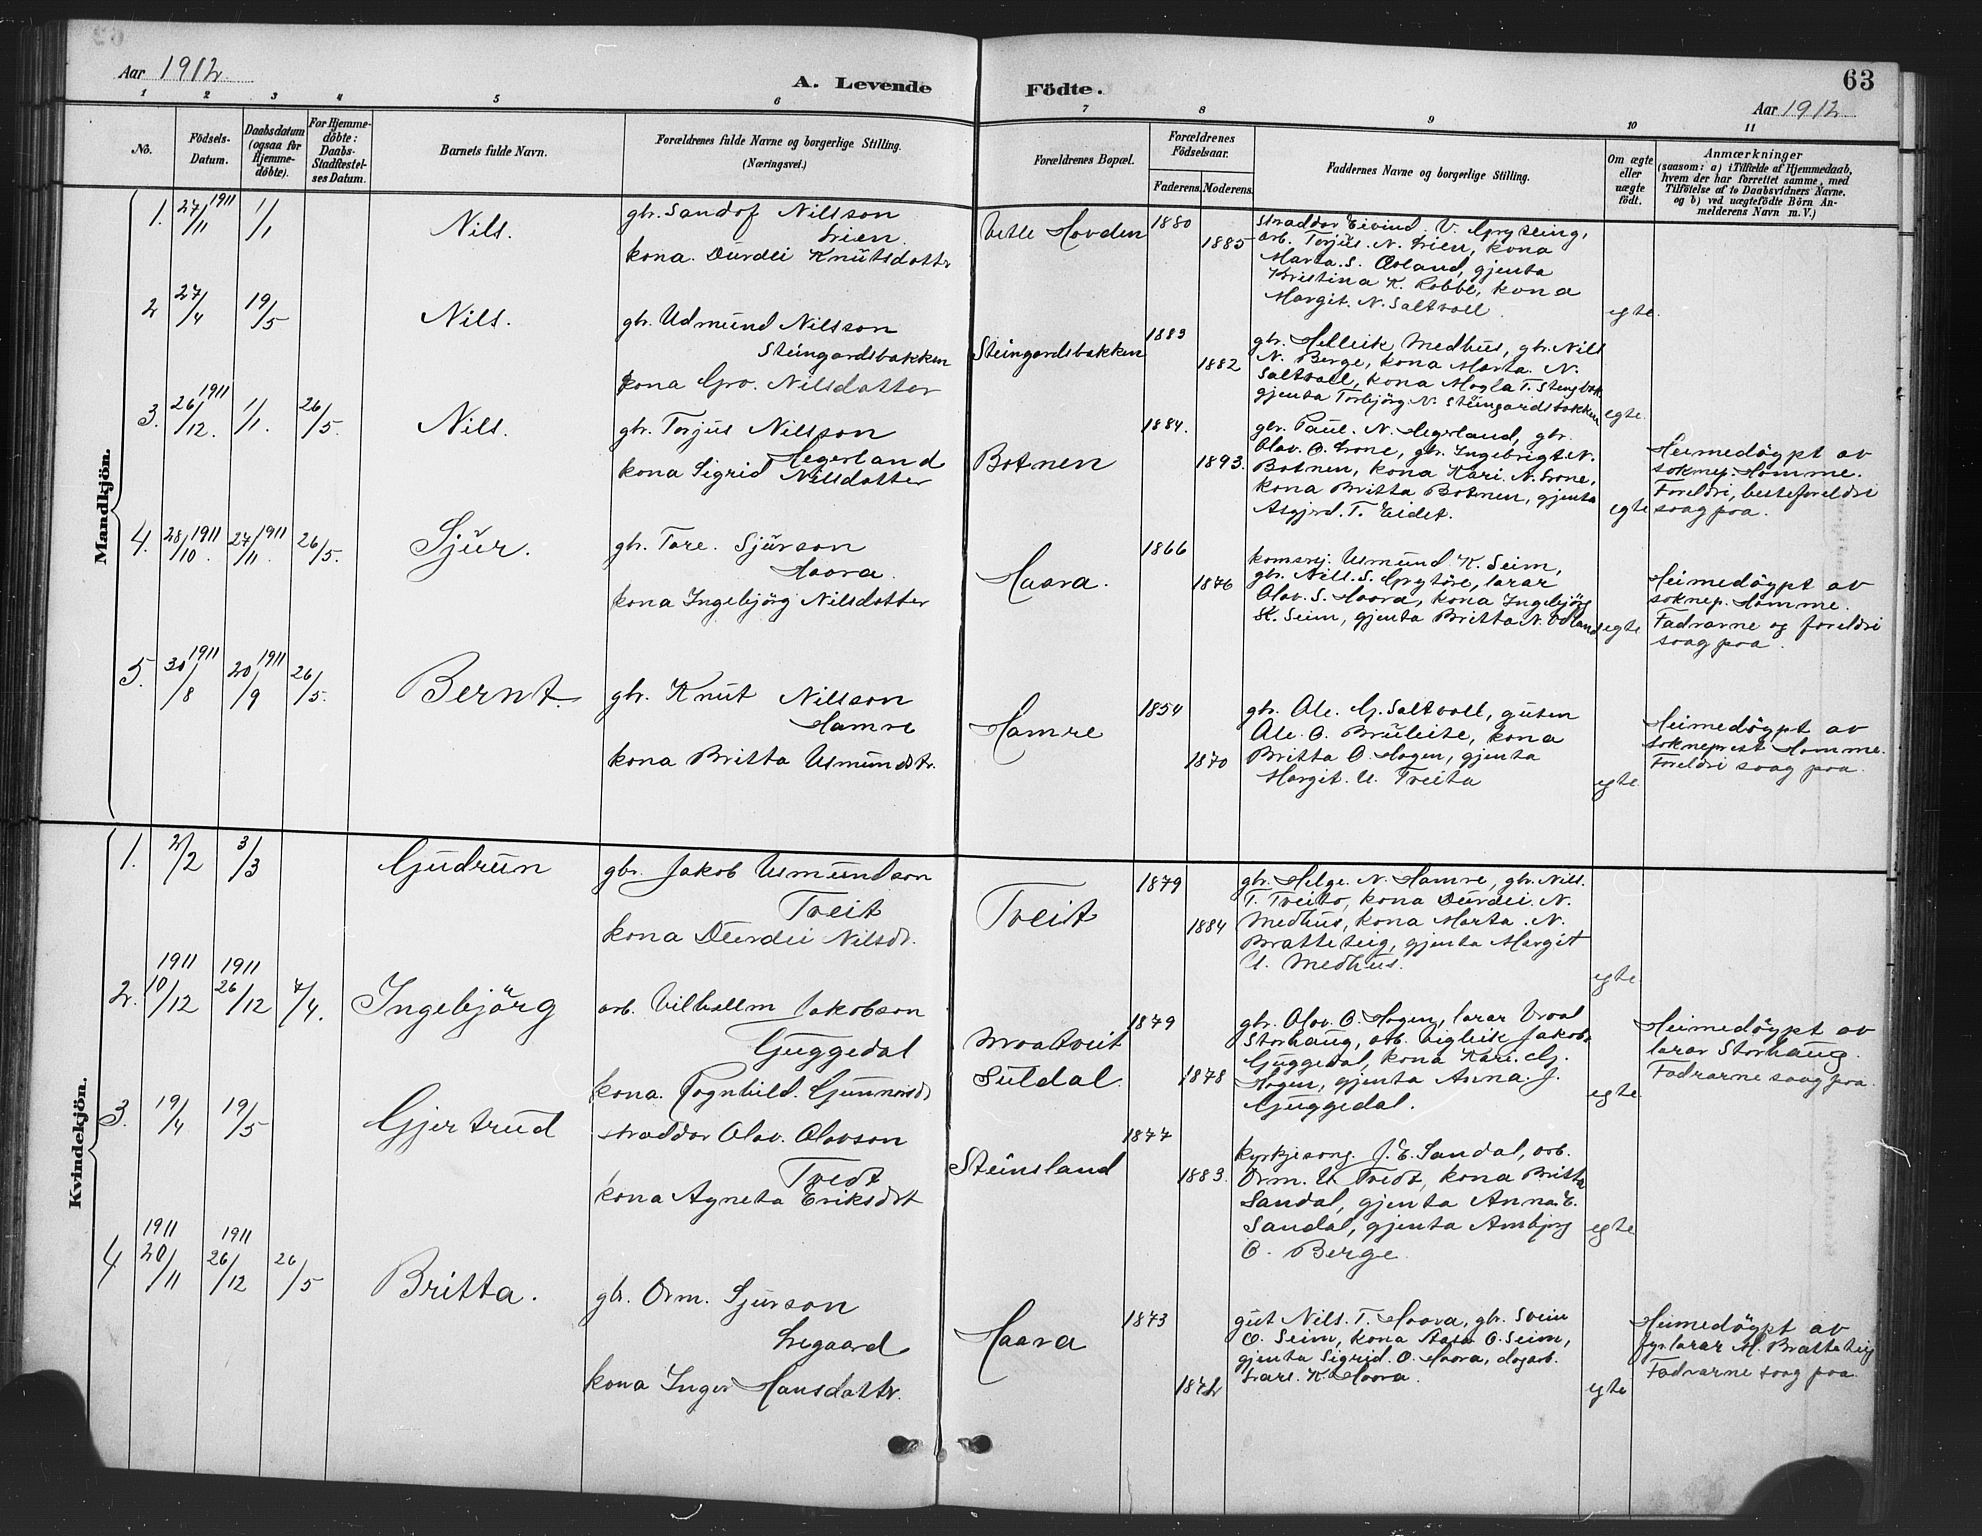 Aar 1912
A. Levende Födte.
63
Aar 1912
1 2 3 4 5 6 7 8 9 10 11
No.
Födsels-
Datum.
Daabsdatum
(ogsaa for
Hjemme-
døbte).
For Hjemme-
döbte:
Daabs-
Stadfæstel-
ses Datum.
Barnets fulde Navn.
Forældrenes fulde Navne og borgerlige Stilling.
(Næringsvei.)
Forældrenes Bopæl.
Forældrenes
Födselsaar.
Faderens. Moderens.
Faddernes Navne og borgerlige Stilling.
Om ægte
eller
uægte
født.
Anmærkninger
(saasom: a) i Tilfælde af Hjemmedaab,
hvem der har forrettet samme, med
Tilföielse af to Daabsvidners Navne.
og b) ved uægtefödte Börn An-
melderens Navn m. V.)
Mandkjön.
1. 27/11 1911 1/1 Nils.
gbr. Sandof Nilsson
Lien.
kona. Durdei Knutsdottr
Vetle Hovden
1880
1885
straddor Eivind V. Gryteing,
arb. Torjus. N. Lien, kona
Marta. S. Øvland, gjenta
Kristina K. Robbe, kona
Margit. N. Saltvoll.
egte.
2 27/4 19/5 Nils.
gbr. Udmund Nilsson
Steingardsbakken
kona Gro. Nilsdatter
Steingardsbakken
1883
1882
gbr. Helleik Medhus, gbr. Nils
N. Berge, kona Marta. N.
Saltvoll, kona Magla T. Stengbak
gjenta Torbjörg. N. Steingardsbakken
egte.
3. 26/12. 1911 1/1. 26/5. Nils.
gbr. Torjus Nilsson
Hegerland
kona Sigrid Nilsdatter
Botnen
1884.
1893.
gbr. Paul. N. Hegerland, gbr.
Olav. O. Lone, gbr. Ingebrigt N.
Botnen, kona Kari. N. Lone,
kona Britta Botnen, gjenta
Asgjerd. T. Eidet.
egte
Heimedöypt av
soknep. Homme.
Foreldri, besteforeldri
saag paa.
4. 28/10. 1911 27/11. 1911 26/5. Sjur.
gbr. Tore. Sjurson
Haara.
kona Ingebjörg Nilsdatter
Haara.
1866
1876
komsrj. Usmund K. Seim,
gbr. Nils. S. Grytöre, larar
Olav. S. Haara, kona Ingebjörg
K. Seim, gjenta Britta N. Udland
egte
Heimedöypt av
soknep. Homme.
Fadrarne og foreldri
saag paa.
5. 30/8 1911 20/9 1911 26/5. Bernt.
gbr. Knut Nilsson
Hamre
kona Britta Usmundsdtr.
Hamre
1854
1870
gbr. Ole. G. Saltvoll, guten
Ole. O. Bruleite, kona
Britta O. Hagen, gjenta
Margit. U. Treita
egte.
Heimedöypt av
sokneprest Homme.
Foreldri saag paa.
Kvindekjön.
1. 2/2 3/3 Gudrun
gbr. Jakob Usmundson
Treit
kona Durdei Nilsdr.
Treit
1879
1884
gbr. Helge. N. Hamre, gbr. Nils.
T. Treito, kona Durdei. N.
Medhus, kona Marta. N.
Bratteteig, gjenta Margit
U. Medhus.
egte
2. 1911 10/12 1911 26/12 7/4. Ingebjörg
arb. Vilhellm Jakobson
Guggedal
kona. Rognhild. Gunnarsdt
Mvaatveit
Suldal.
1879
1878
gbr. Olav. O. Hagen, larar Vraal
Storhaug, arb. Vigleik Jakobs.
Guggedal, kona Kari. G.
Hagen, gjenta Anna. J.
Guggedal.
egte
Heimedöypt av
larar Storhaug.
Fadrarne saag paa.
3. 19/4 19/5 Gjertrud
straddar Olav. Olavson
Tredt
kona Agneta Eriksdtt
Steinsland
1877
1883.
kyrkjesong. J. E. Sandal, arb.
Orm. U. Tredt, kona Britta
Sandal, gjenta Anna E.
Sandal, gjenta Ambjorg
O. Berge.
egte
4 1911 20/11 1911 26/12 26/5 Britta.
gbr. Orm. Sjurson
Legaard
kona Inger Hansdottr.
Haara
1873
1872
gut Nils. T. Haara, gbr. Svein
O. Seim, kona Aasa O. Seim,
gjenta Sigrid. O. Haara, dagarb.
Lars. K. Haara.
egte
Heimedöypt av
fyr. larar H. Bratteteig
Fadrarne saag paa.